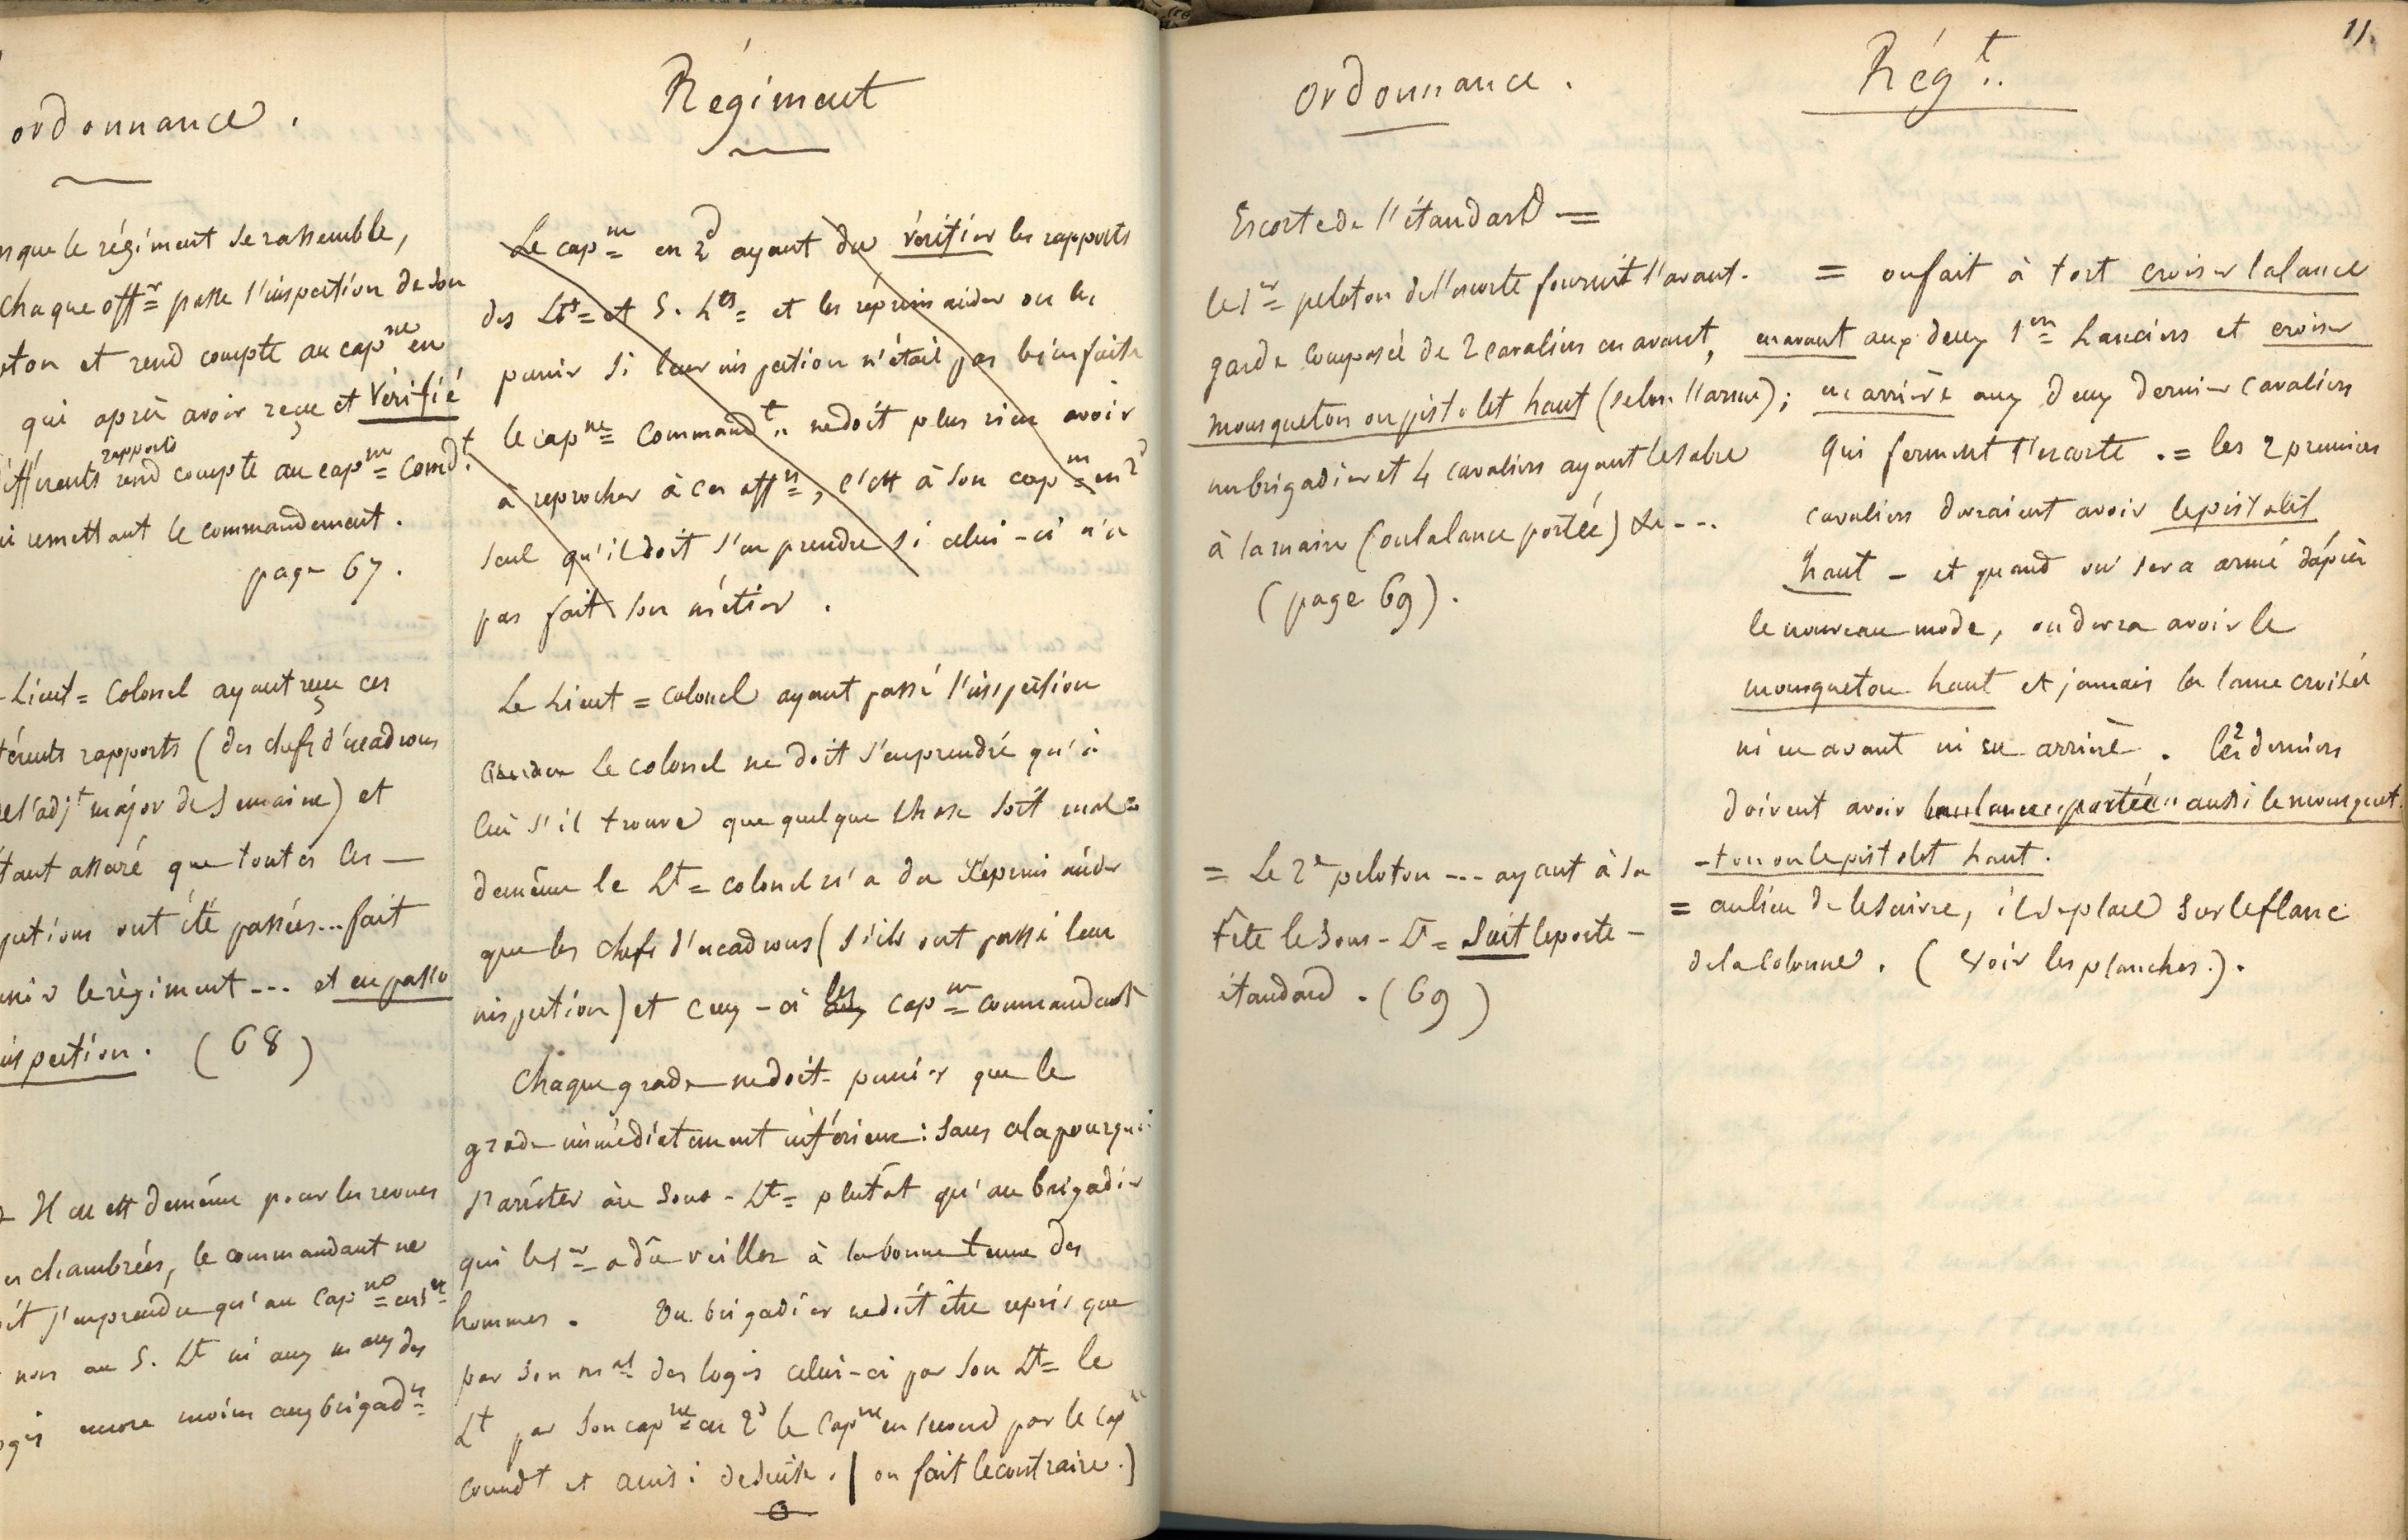 ordonnance.
nsque le régiment se rassemble,
chaque offr passe l'inspection de son
oton et rend compte au capne en
qui après avoir reçu et Vérifié
rapports
ifférents rend compte au capne Comdt.
i remettant le commandement.
page 67.
Lieut = Colonel ayant reçu ces
férents rapports (des chefs d'escadrons
l'adjt major de Semaine) et
tant assuré que toutes les —
pections ont été passées... fait
nir le régiment --- et en passe
inspection. (68)
Il en est de même pour les revues
es chambrées, le commandant ne
it s'en prendre qu'au Capne en 1er
non au S. Lt ni aux maux des
ogis encore moins aux brigadrs
Régiment
Le capne en 2d ayant du vérifier les rapports
des Lts et S. Lts et les réprimander ou les
punir si leur inspection n'était pas bien faite
le capne Commandt ne doit plus rien avoir
à reprocher à ces offrs, c'est à son capne en 2d
seul qu'il doit s'en prendre si celui-ci n'a
pas fait son métier.
Le Lieut = Colonel ayant passé l'inspection
le colonel ne doit s'en prendre qu'à
lui s'il trouve que quelque chose soit mal =
de même le Lt = colonel n'a du réprimander
que les chefs d'escadrons (s'ils ont passé leur
inspection) et ceux-ci les capnes commandants
Chaque grade ne doit punir que le
grade immédiatement inférieur: sans cela pourquoi
s'arrêter au Sous-Lt = plutôt qu'au brigadier
qui le 1er a dû veiller à la bonne tenue des
hommes. Un brigadier ne doit être repris que
par son mal des logis celui-ci par son Lt = le
Lt par son capne en 2d le capne en second par le capne
commdt et ainsi de suite. (on fait le contraire.)
11.
Ordonnance.
Escorte de l'étendard =
le 1er peloton de l'escorte fournit l'avant-
garde composée de 2 cavaliers en avant,
mousqueton ou pistolet haut (selon l'arme);
un brigadier et 4 cavaliers ayant le sabre
à la main (ou la lance portée) &a ---
(page 69).
= Le 2e peloton --- ayant à sa
tête le sous-Lt = Suit le porte-
étendard. (69)
Régt.
= on fait à tort croiser la lance
en avant aux deux 1ers Lanciers et croiser
en arrière aux deux dernier cavaliers
qui ferment l'escorte. = les 2 premiers
cavaliers devraient avoir le pistolet
haut - et quand on sera armé d'après
le nouveau mode, on devra avoir le
mousqueton haut et jamais la lance croisée
ni en avant ni en arrière. les 2 derniers
doivent avoir la lance portée aussi le mousquet
-ton ou le pistolet haut.
= au lieu de le suivre, il se place sur le flanc
de la Colonne. (Voir les planches.).